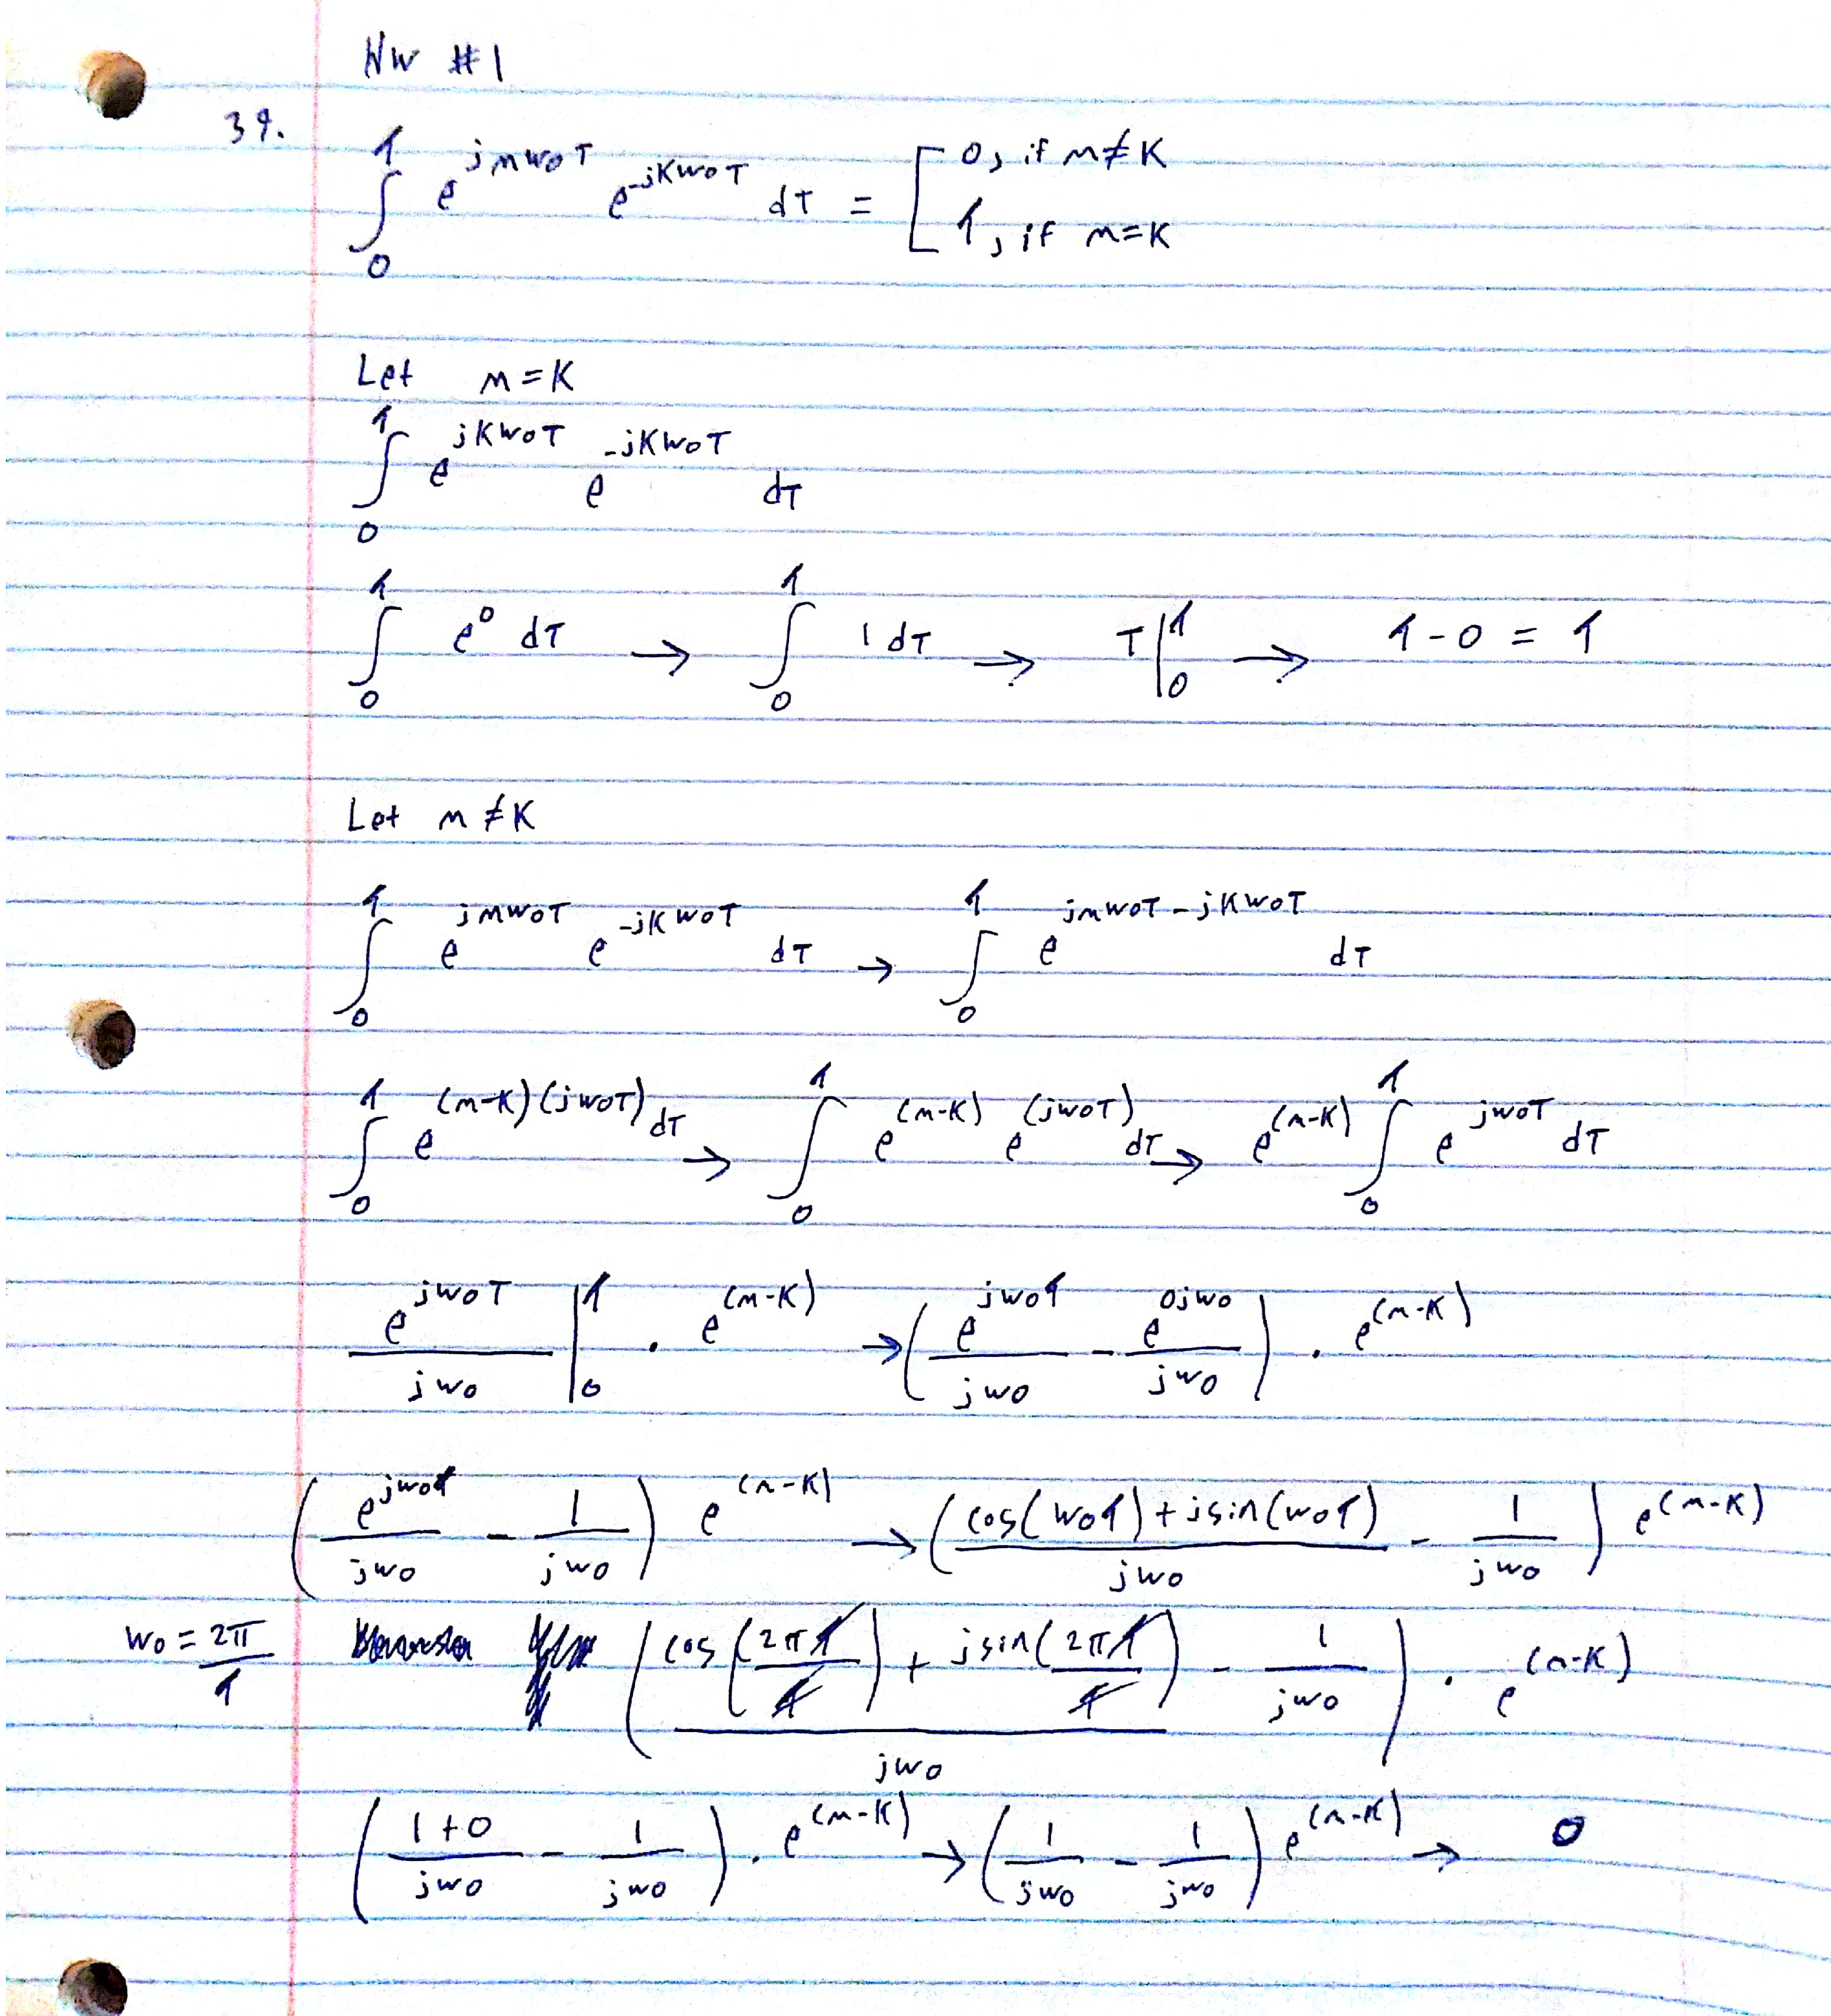 HW #1
39.
∫₀¹ e^{jmw₀T} e^{-jKw₀T} dT = [ 0, if m≠K
1, if m=K
Let m=K
∫₀¹ e^{jKw₀T} e^{-jKw₀T} dT
∫₀¹ e⁰ dT → ∫₀¹ 1 dT → T|₀¹ → 1-0 = 1
Let m≠K
∫₀¹ e^{jmw₀T} e^{-jKw₀T} dT → ∫₀¹ e^{jmw₀T-jKw₀T} dT
∫₀¹ e^{(m-K)(jw₀T)} dT → ∫₀¹ e^{(m-K)} e^{(jw₀T)} dT → e^{(m-K)} ∫₀¹ e^{jw₀T} dT
e^{jw₀T}/jw₀ |₀¹ · e^{(m-K)} → (e^{jw₀1}/jw₀ - e^{0jw₀}/jw₀) · e^{(m-K)}
(e^{jw₀1}/jw₀ - 1/jw₀) e^{(m-K)} → ((cos(w₀1)+jsin(w₀1))/jw₀ - 1/jw₀) e^{(m-K)}
w₀ = 2π/1 ((cos(2π1/1) + jsin(2π1/1))/jw₀ - 1/jw₀) · e^{(m-K)}
((1+0)/jw₀ - 1/jw₀) · e^{(m-K)} → (1/jw₀ - 1/jw₀) e^{(m-K)} → 0